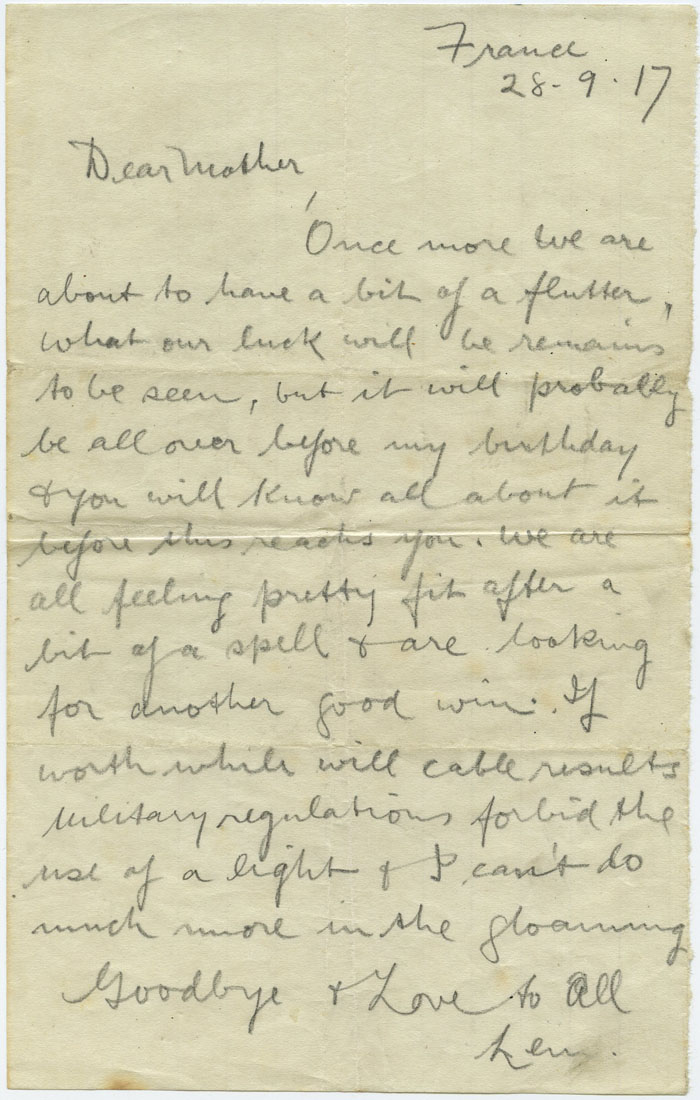 France
28-9-17
Dear Mother,
Once more we are
about to have a bit of a flutter,
what our luck will be remains
to be seen, but it will probably
be all over before my birthday
& you will know all about it
before this reachs you. We are
all feeling pretty fit after a
bit of a spell & are looking
for another good win. If
worth while will cable results
Military regulations forbid the
use of a light & I can't do
much more in the gloaming
Goodbye & Love to All
Len.